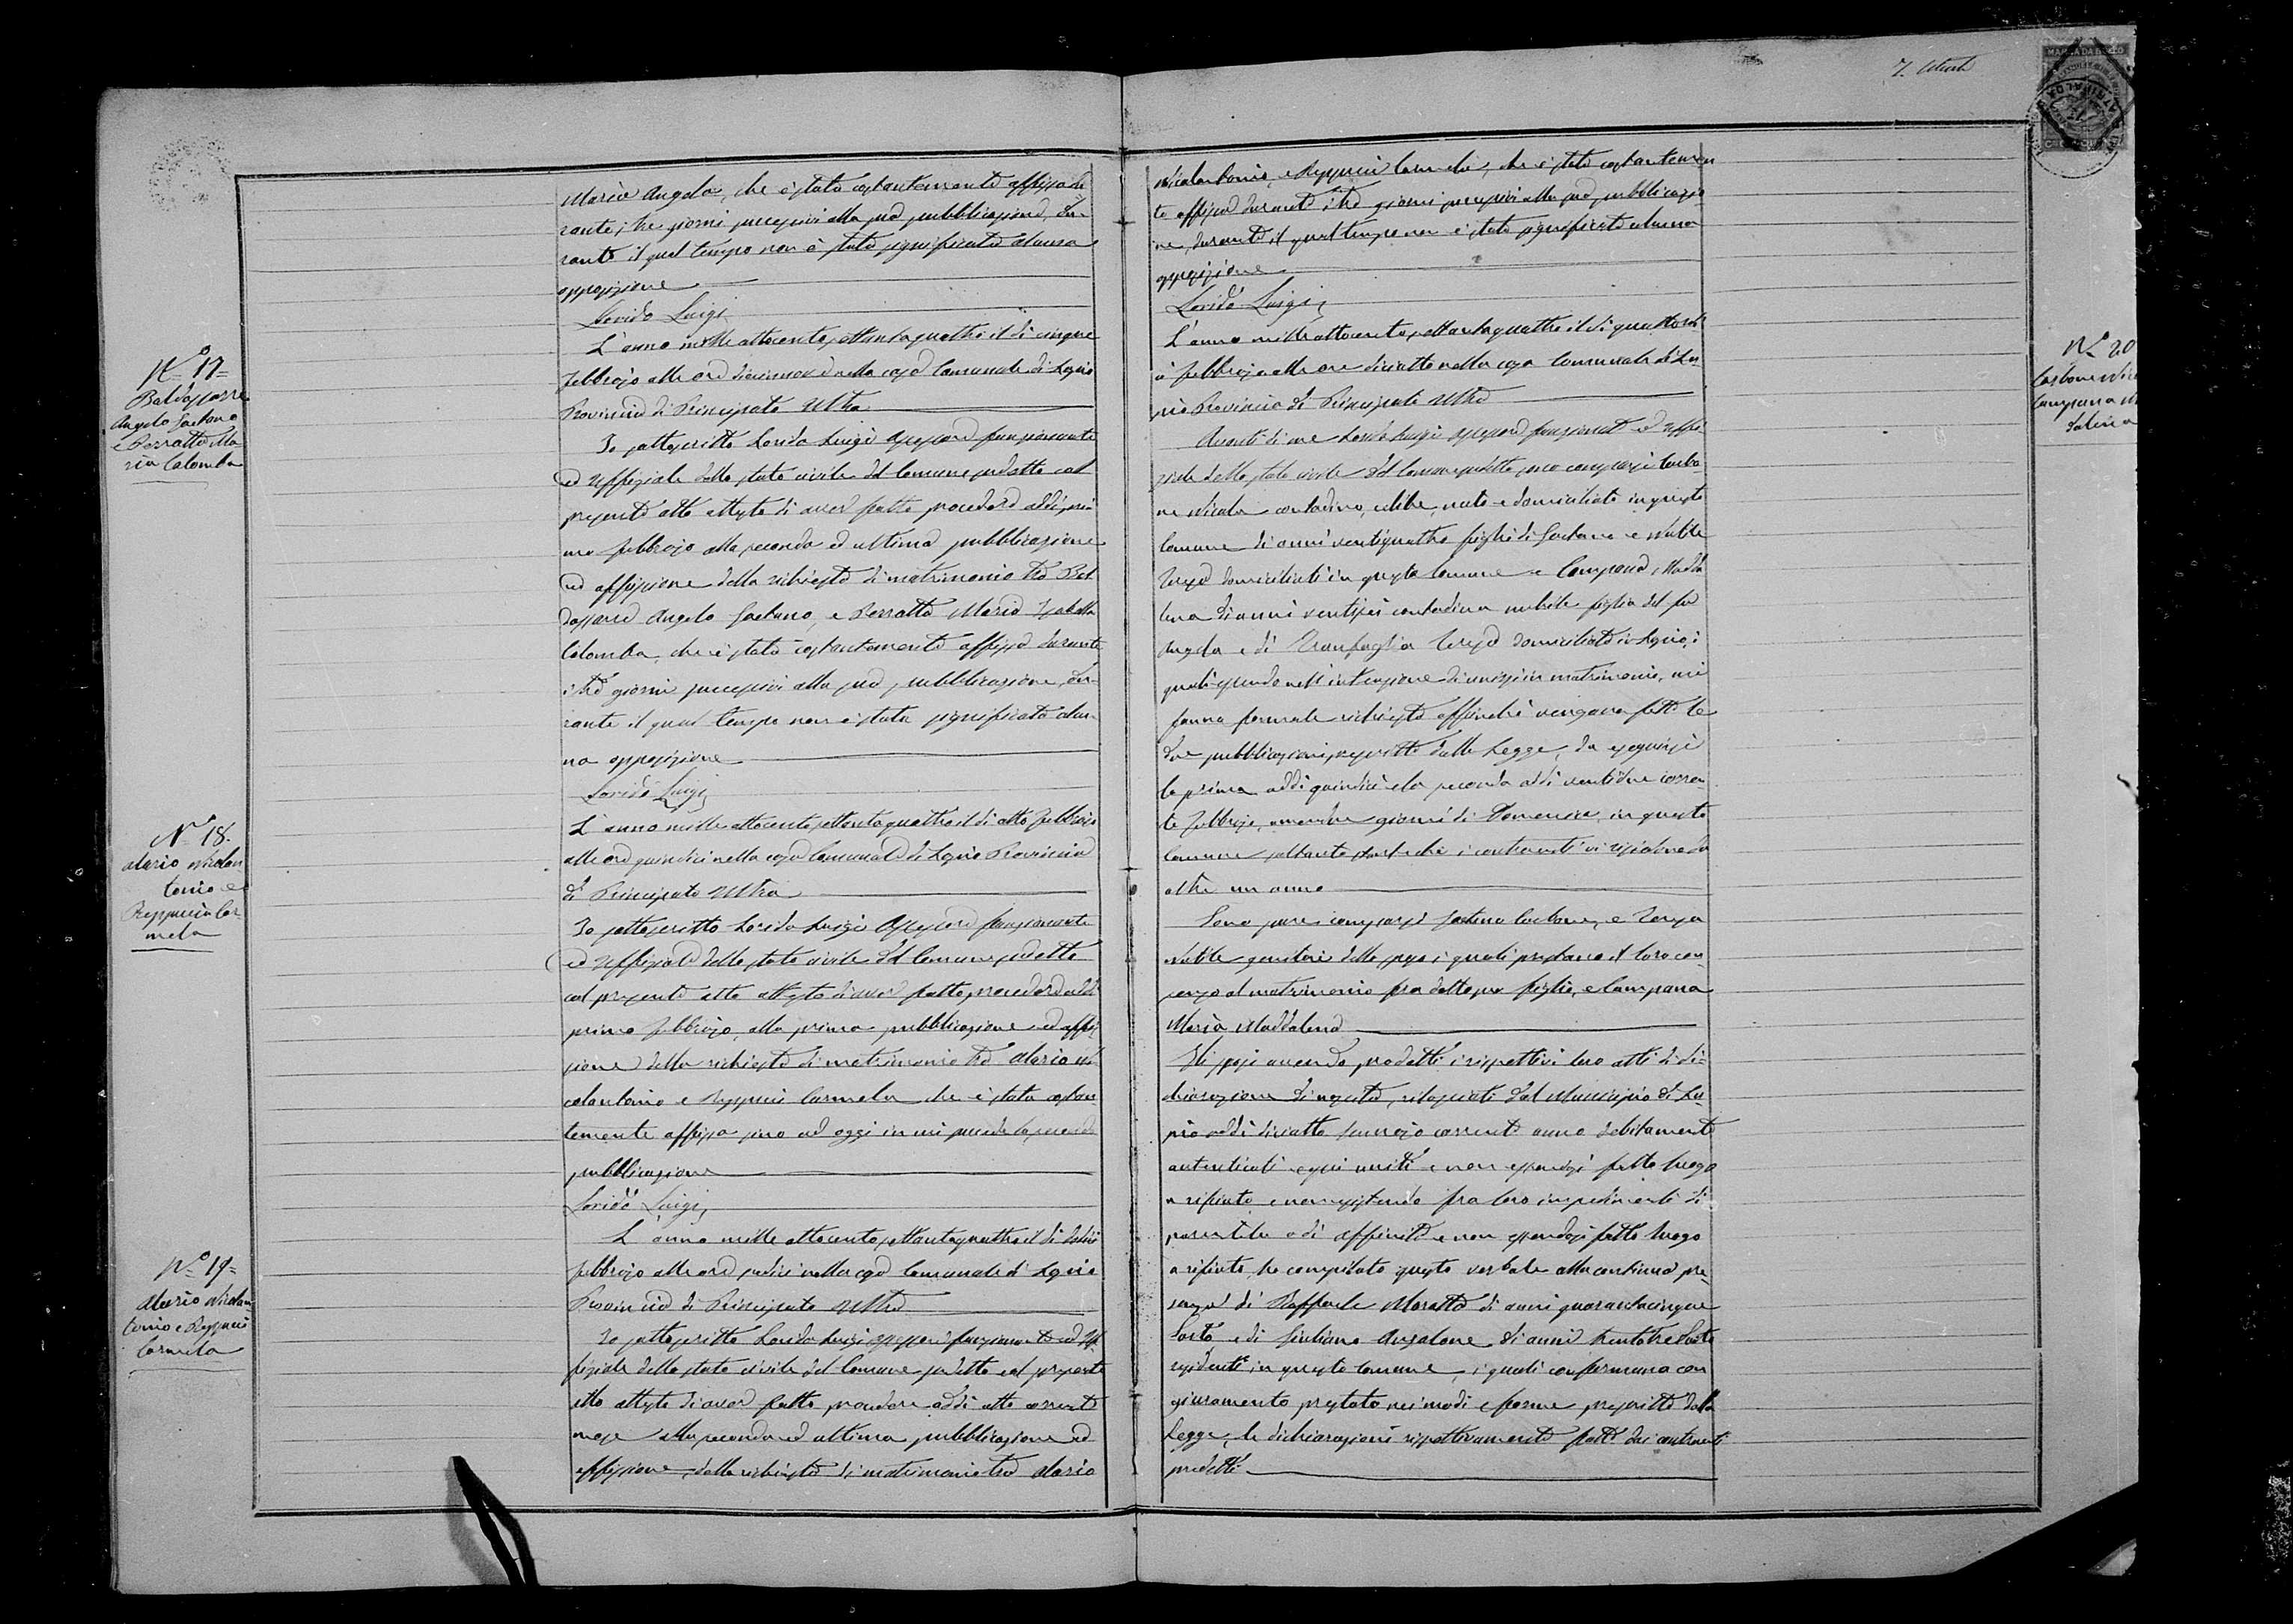 Maria Angela, che è stata costantemente affissa du-
rante i tre giorni successivi alla sua pubblicazione, du-
rante il qual tempo non è stata significata alcuna
opposizione
Lorido Luigi
N.° 17=
Baldassarre
Angelo Gaetano
e Perrotta Ma
ria Colomba
L'anno mille ottocento settantaquattro il dì cinque
febbrajo alle ore diecinove nella casa Comunale di Lapio
Provincia di Principato Ultra
Io sottoscritto Lorido Luigi assessore funzionante
ed uffiziale dello stato civile del Comune sudetto col
presente atto attesto di aver fatto procedere addì pri
mo febbrajo alla seconda ed ultima pubblicazione
ed affissione della richiesta di matrimonio tra Bal
dassarre Angelo Gaetano, e Perrotta Maria Isabella
Colomba, che è stata costantemente affissa durante
i tre giorni successivi alla sua pubblicazione, du-
rante il qual tempo non è stata significata alcu-
na opposizione
Lorido Luigi
N.° 18.
Alario Nicolan
tonio e
Reppucci Car-
mela
L'anno mille ottocento settantaquattro il dì otto febbrajo
alle ore quindici nella casa Comunale di Lapio Provincia
di Principato Ultra
Io sottoscritto Lorido Luigi assessore funzionante
ed uffiziale dello stato civile del Comune sudetto
col presente atto attesto di aver fatto procedere addì
primo febbrajo, alla prima pubblicazione ed affis
sione della richiesta di matrimonio tra Alario Ni
colantonio e Reppucci Carmela che è stata costan-
temente affissa sino ad oggi in cui succede la seconda
pubblicazione
Lorido Luigi
N.° 19=
Alario Nicolan
tonio e Reppucci
Carmela
L'anno mille ottocento settantaquattro il dì dodici
febbrajo alle ore sedici nella casa Comunale di Lapio
Provincia di Principato Ultra
Io sottoscritto Lorido Luigi assessore funzionante ed uf
fiziale dello stato civile del Comune sudetto col presente
atto attesto di aver fatto procedere addì otto corrente
mese alla seconda ed ultima pubblicazione ed
affissione della richiesta di matrimonio tra Alario
MARCA DA BOLLO
ATRIPALDA
Nicolantonio, e Reppucci Carmela, che è stata costantemen
te affissa durante i tre giorni successivi alla sua pubblicazio
ne, durante il qual tempo non è stata significata alcuna
opposizione
Lorido Luigi
N.° 20
Carbone Nico
Campana M
dalena
L'anno mille ottocento settantaquattro il dì quattordi
ci febbrajo alle ore diciotto nella casa Comunale di La-
pio Provincia di Principato Ultra
Avanti di me Lorido Luigi assessore funzionante ed uffi
ziale dello stato civile del Comune sudetto, sono comparsi Carbo-
ne Nicola contadino, celibe, nato e domiciliato in questo
Comune di anni ventiquattro figlio di Gaetano e Nubile
Teresa domiciliati in questo Comune e Campana Madda
lena di anni ventisei contadina nubile figlia del fu
Angelo e di Tranfaglia Teresa domiciliata in Lapio, i
quali essendo nell'intenzione di unirsi in matrimonio, mi
fanno formale richiesta affinchè vengano fatte le
due pubblicazioni prescritte dalla Legge, da eseguirsi
la prima addì quindici e la seconda addì ventidue corren
te febbrajo, amendue giorni di Domenica, in questo
Comune soltanto stante che i contraenti vi risiedono da
oltre un anno
Sono pure comparsi Gaetano Carbone, e Teresa
Nubile genitori dello sposo i quali prestano il loro con-
senso al matrimonio fra detto suo figlio, e Campana
Maria Maddalena
Gli sposi avendo prodotti i rispettivi loro atti di di-
chiarazione di nascita, rilasciati dal Municipio di La-
pio addì diciotto Gennajo corrente anno debitamente
autenticati e qui uniti e non essendosi fatto luogo
a rifiuto, e non esistendo fra loro impedimenti di
parentela o di affinità e non essendosi fatto luogo
a rifiuto, ho compilato questo verbale alla continua pre-
senza di Raffaele Moratta di anni quarantacinque
Sarto e di Giuliano Anzalone di anni trentatre Sarto
residenti in questo Comune, i quali confermano con
giuramento prestato nei modi e forme prescritte dalla
Legge, le dichiarazioni rispettivamente fatte dai contraenti
predetti